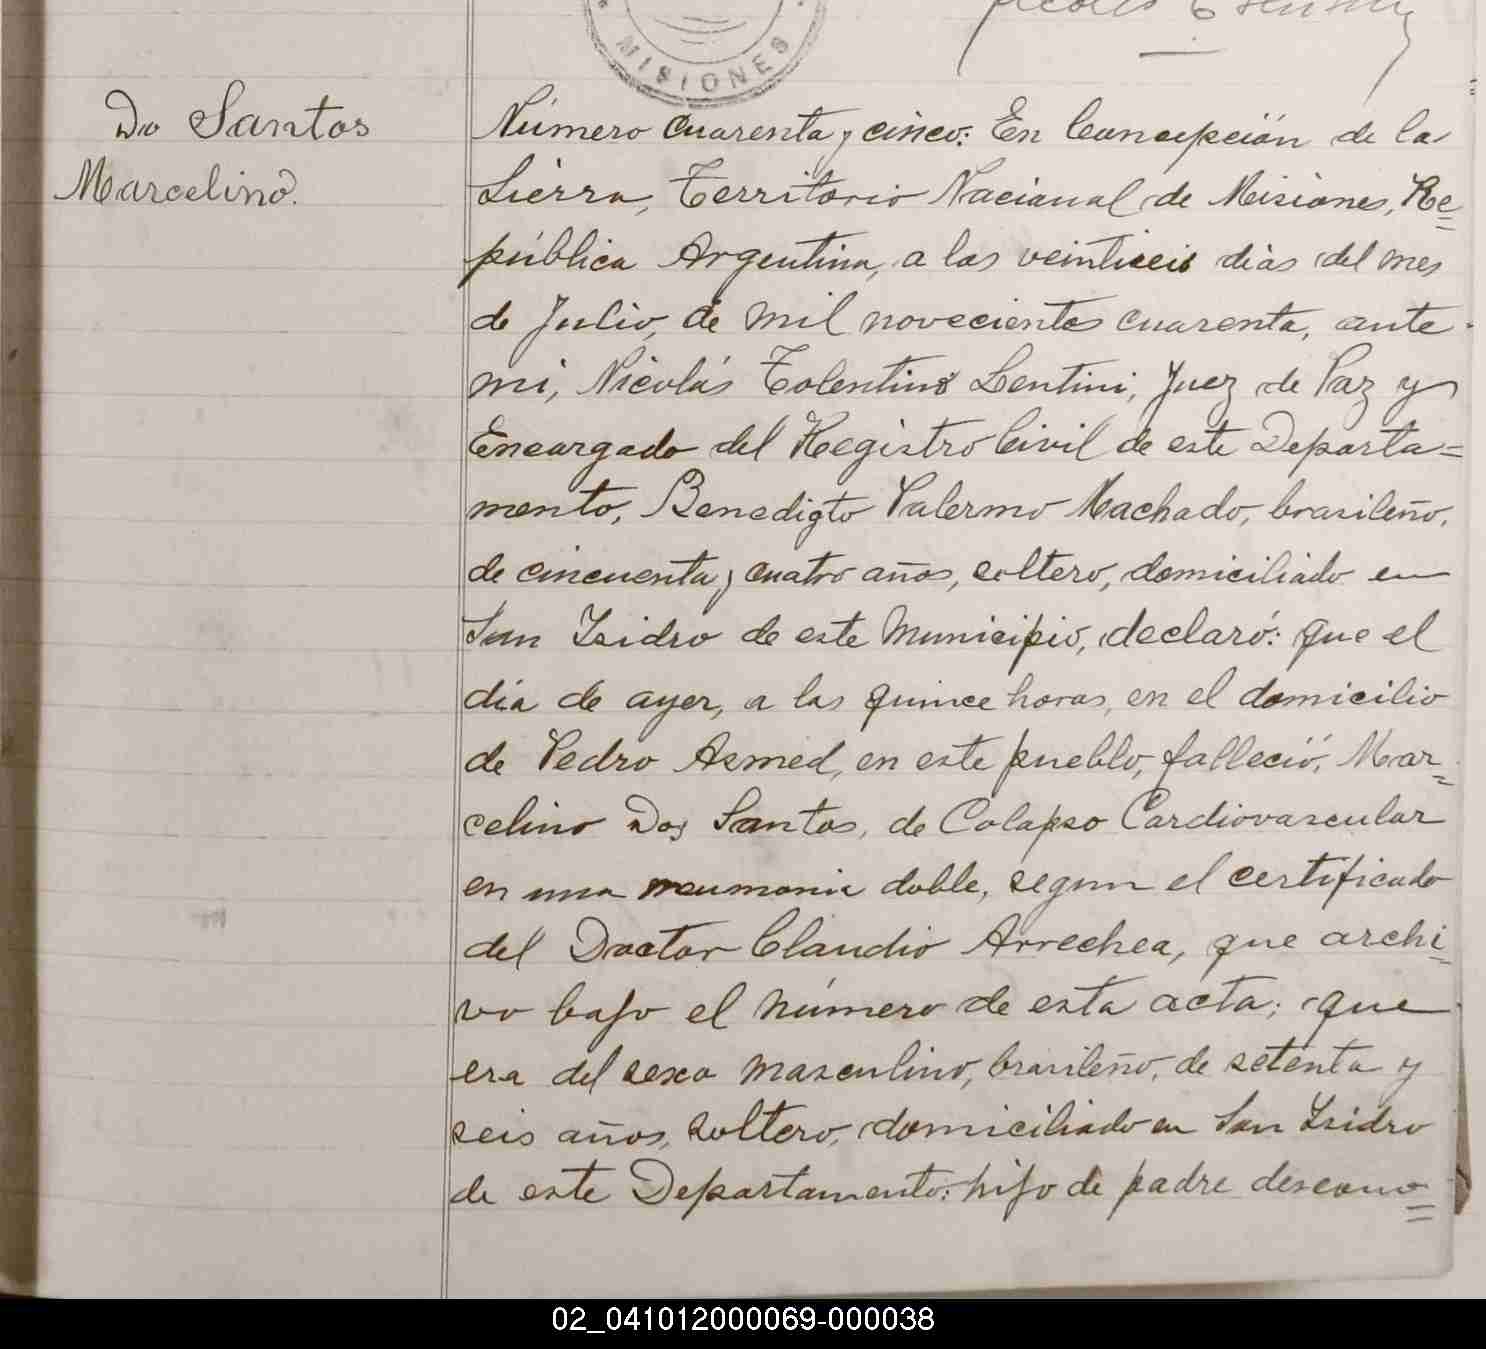 MISIONES
Do Santos
Marcelino.
Número cuarenta y cinco: En Concepción de la
Sierra, Territorio Nacional de Misiones, Re=
pública Argentina, a los veintiseis días del mes
de Julio, de mil novecientos cuarenta, ante
mi, Nicolás Tolentino Lentini, Juez de Paz y
Encargado del Registro Civil de este Departa=
mento, Benedigto Palermo Machado, brasileño,
de cincuenta y cuatro años, soltero, domiciliado en
San Isidro de este Municipio, declaró: que el
día de ayer, a las quince horas, en el domicilio
de Pedro Asmed, en este pueblo, falleció, Mar=
celino Dos Santos, de Colapso Cardiovascular
en una neumonia doble, segun el certificado
del Doctor Claudio Arrechea, que archi=
vo bajo el número de esta acta; que
era del sexo masculino, brasileño, de setenta y
seis años, soltero, domiciliado en San Isidro
de este Departamento: hijo de padre descono=
02_041012000069-000038